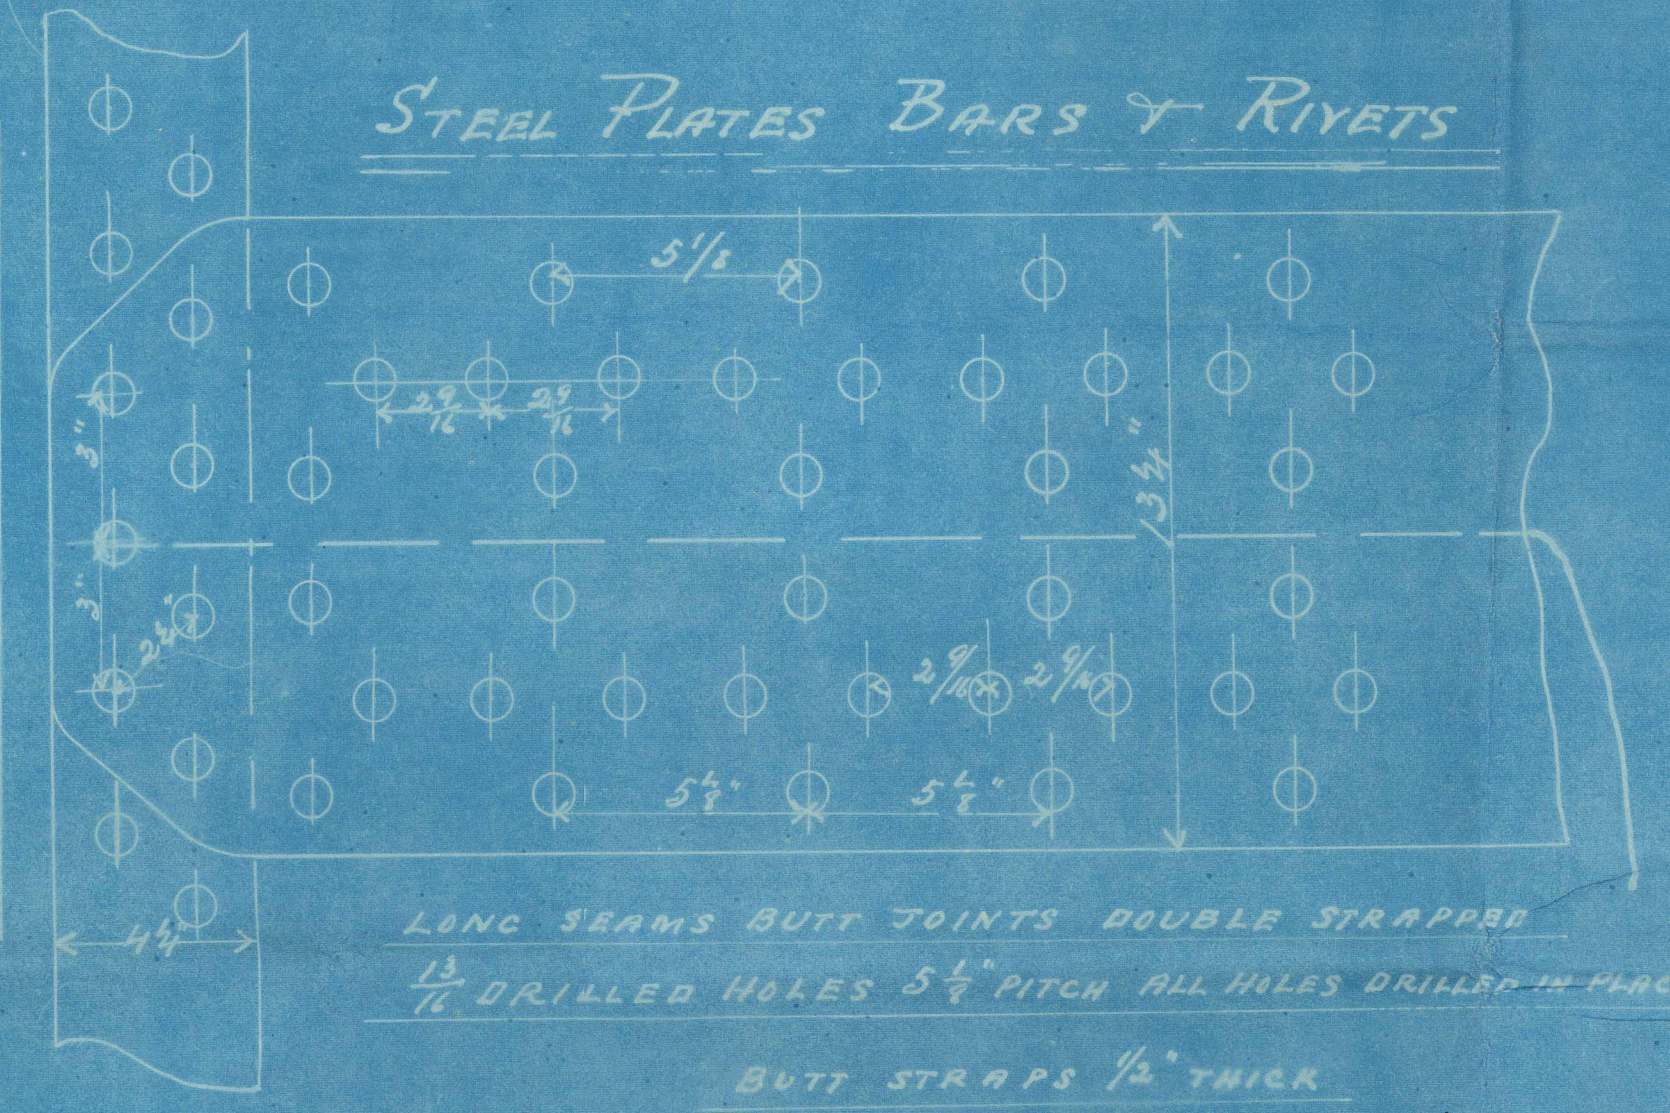 STEEL PLATES BARS & RIVETS
5 1/8
2 9/16 2 9/16
3"
13 3/4"
3"
2 1/4"
2 9/16 2 9/16
5 1/8" 5 1/8"
4 1/4"
LONG SEAMS BUTT JOINTS DOUBLE STRAPPED
13/16 DRILLED HOLES 5 1/8" PITCH ALL HOLES DRILLED IN PLAC
BUTT STRAPS 1/2" THICK